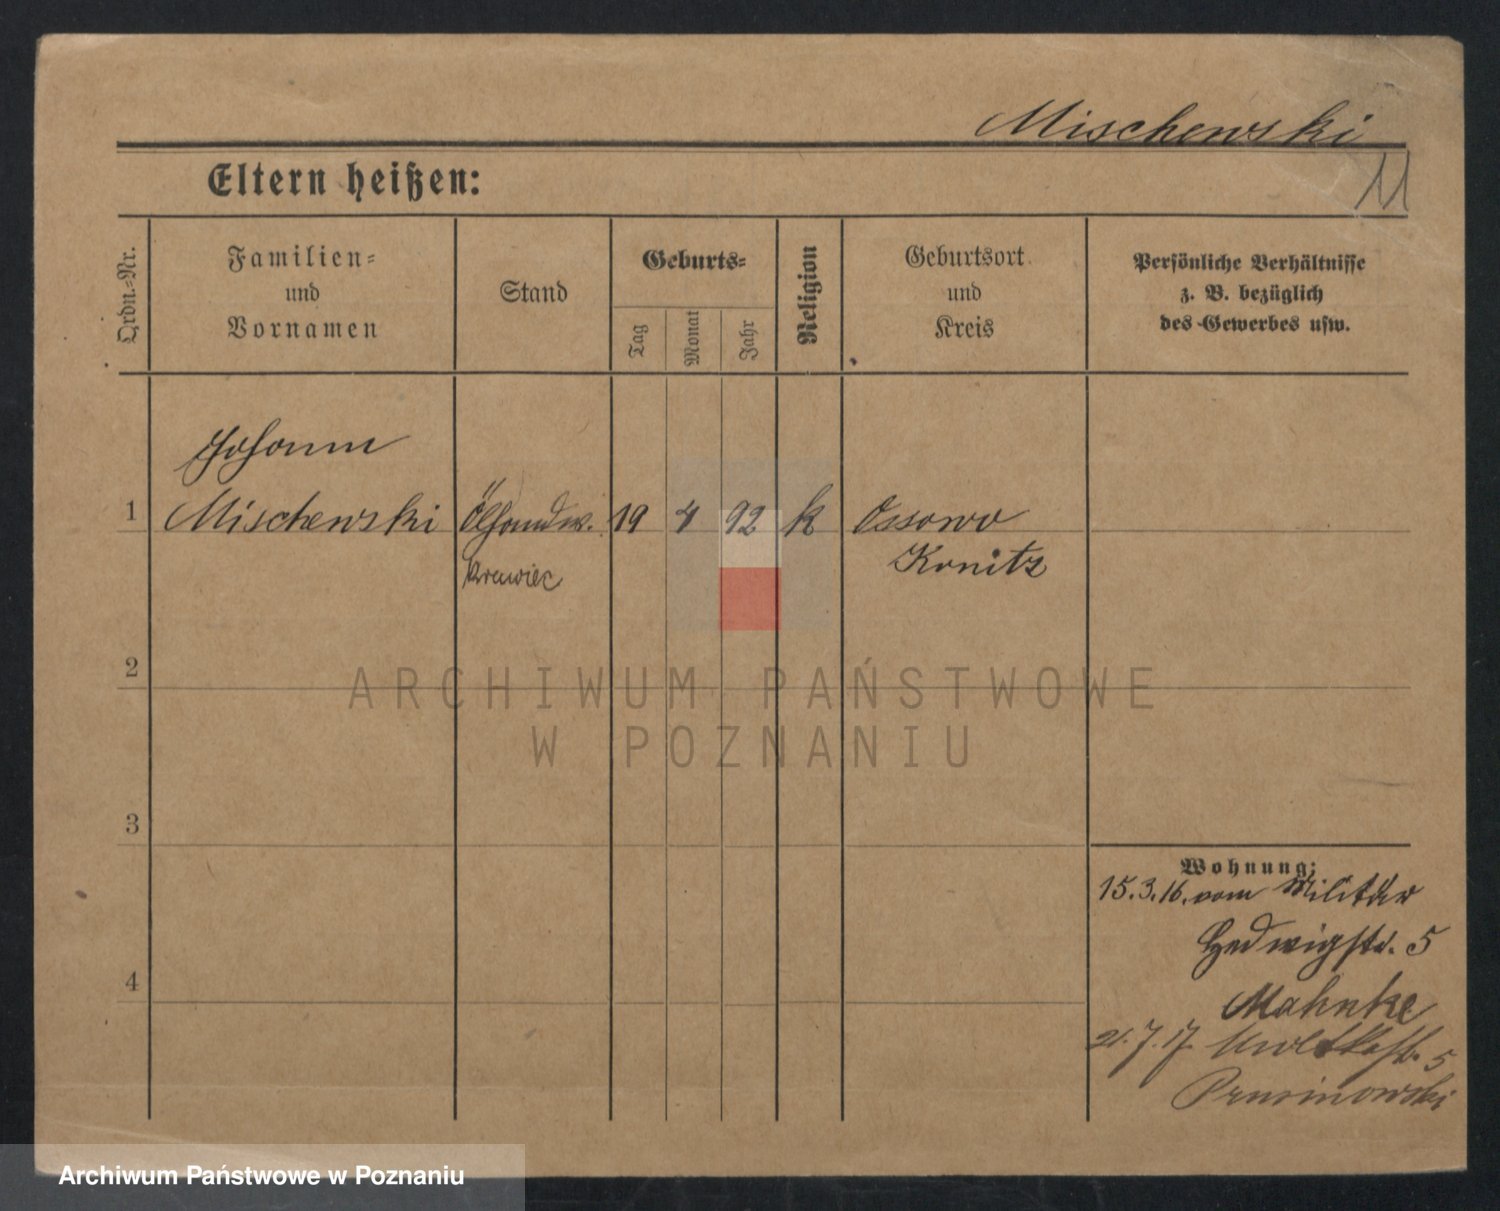 Mischewski
11
Eltern heißen:
Ordn.-Nr.
Familien-
und
Vornamen
Stand
Geburts-
Tag
Monat
Jahr
Religion
Geburtsort
und
Kreis
Persönliche Verhältnisse
z. B. bezüglich
des Gewerbes usw.
Johann
1 Mischewski 19 4 92 k Ossowo
krawiec Konitz
2
ARCHIWUM PAŃSTWOWE
W POZNANIU
3
Wohnung:
15.3.16. vom Militär
Hedwigstr. 5
4
Mahnke
21.7.17 Moltkestr. 5
Prusinowski
Archiwum Państwowe w Poznaniu